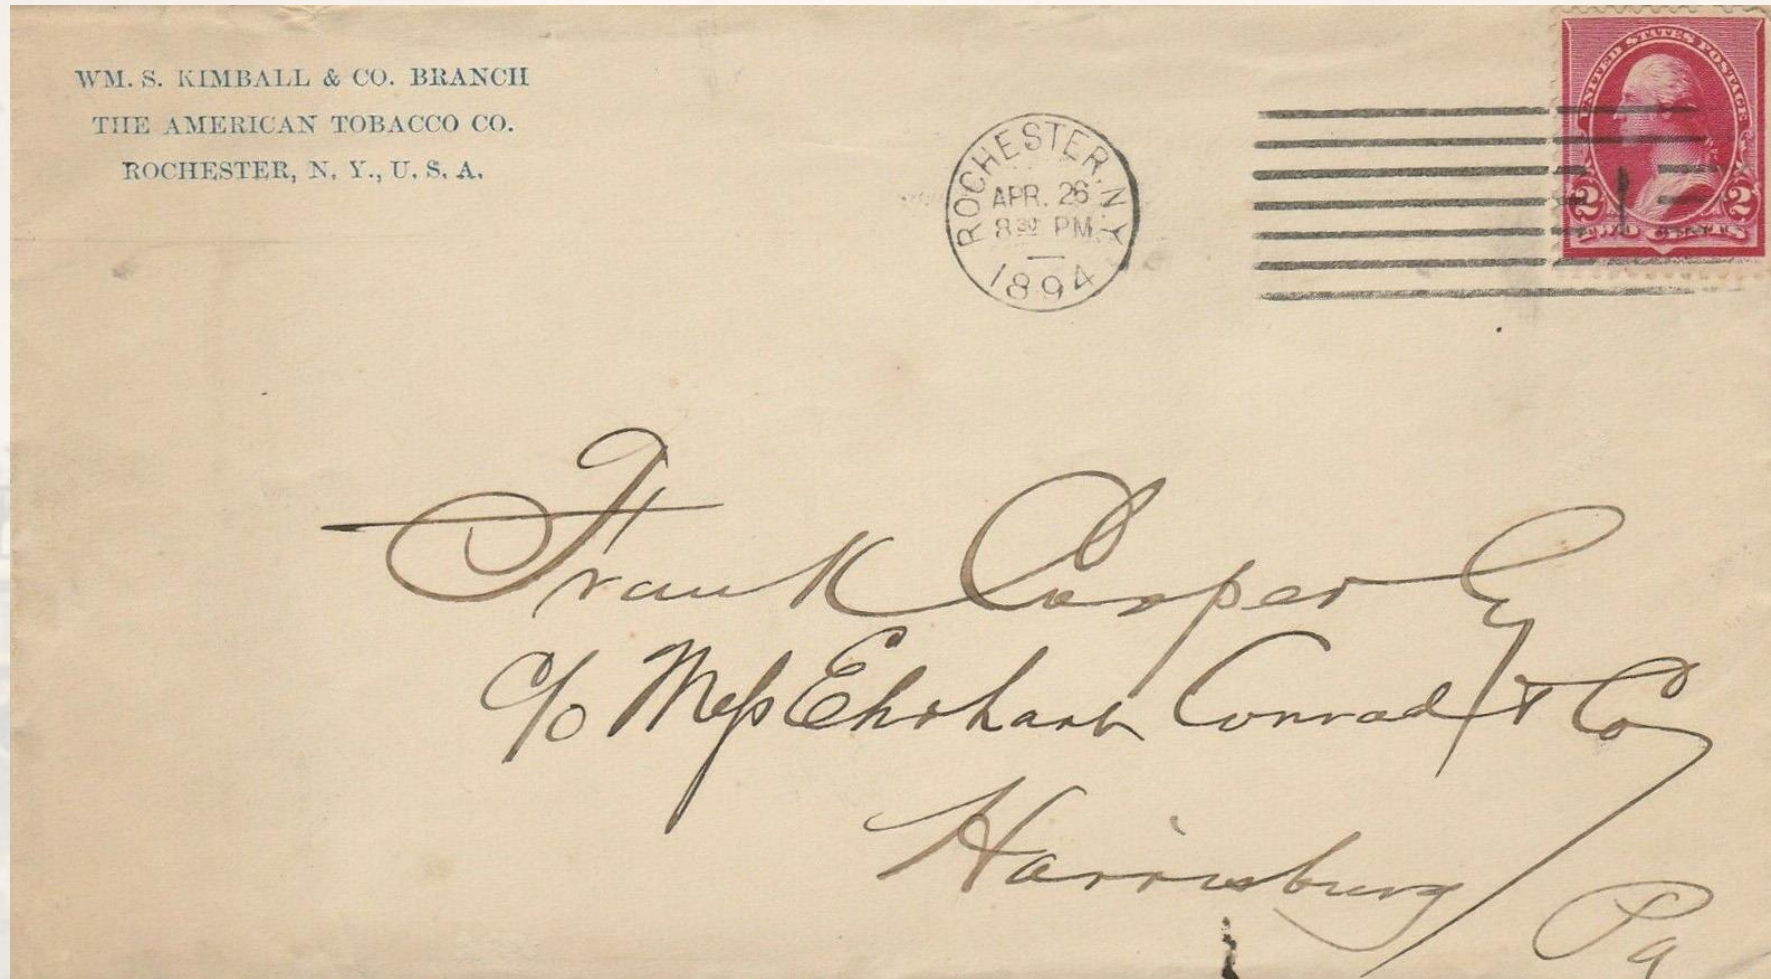 WM. S. KIMBALL & CO. BRANCH
THE AMERICAN TOBACCO CO.
ROCHESTER, N. Y., U. S. A.
ROCHESTER, N.Y.
APR. 26
8 30 PM
1894
UNITED STATES POSTAGE
2 2
TWO CENTS
1
Frank Cosper
c/o Mess Ehrhart Conrad & Co
Harrisburg
Pa